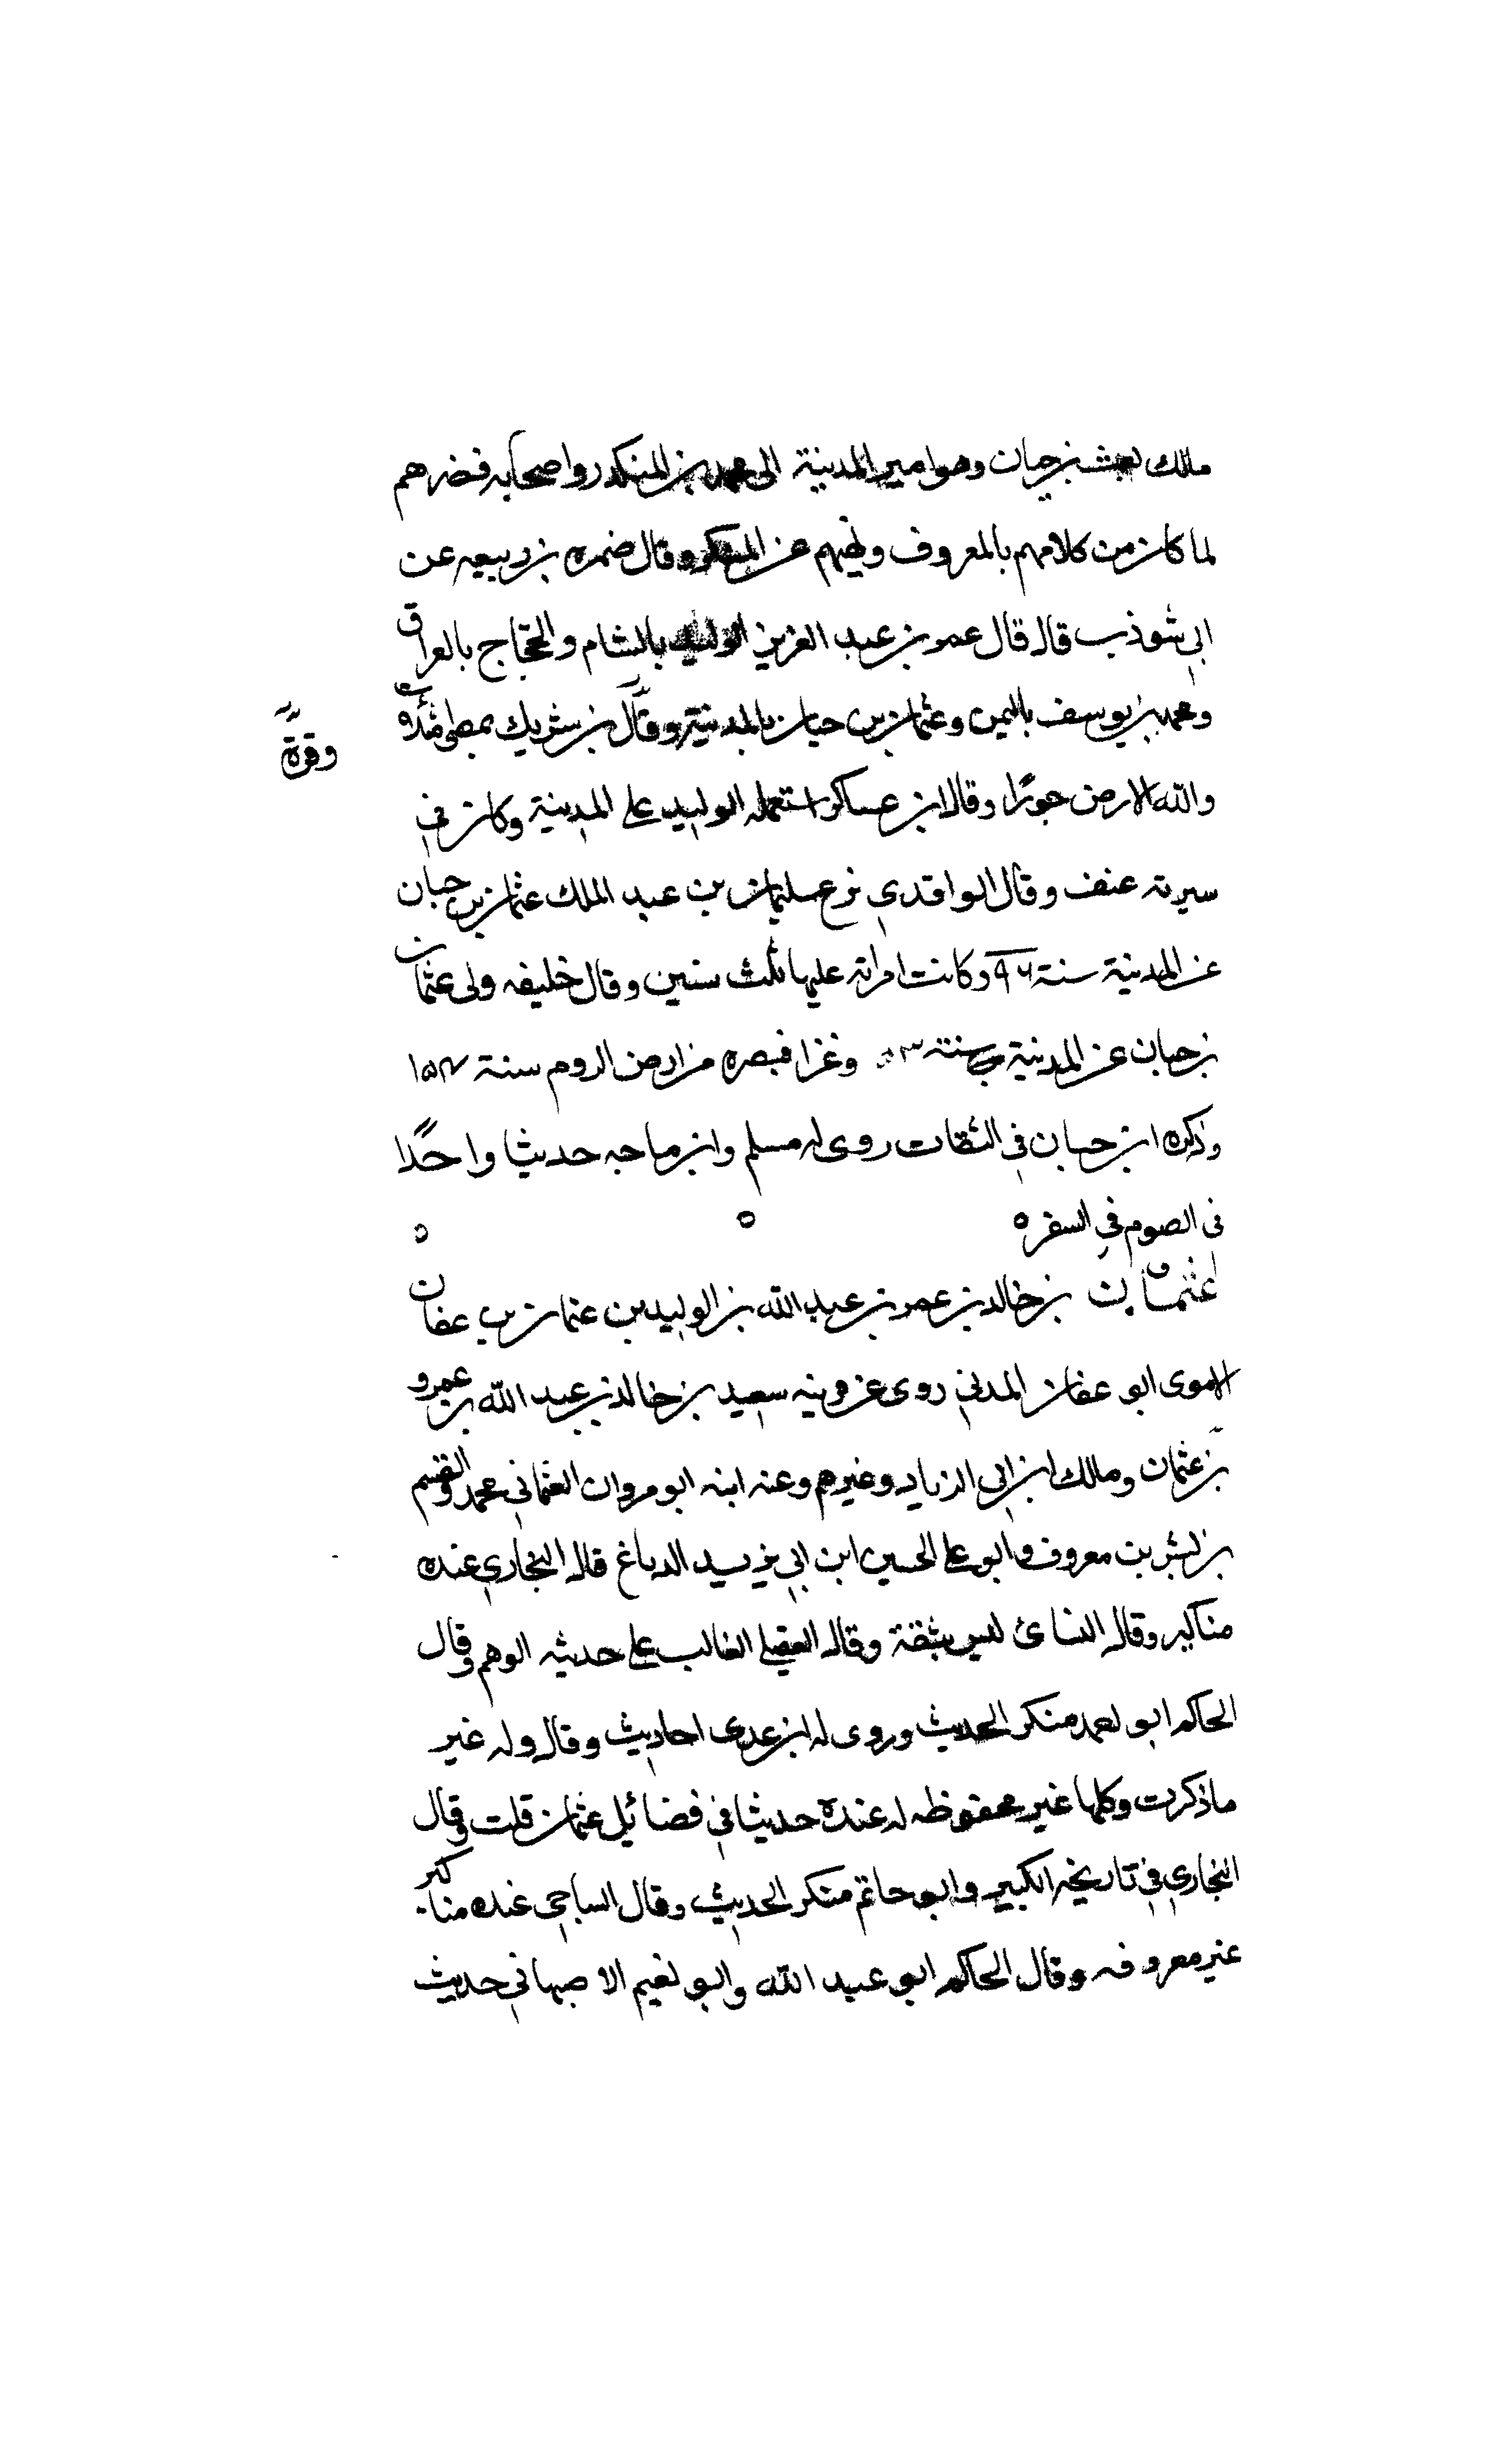 ملك بعث بن حيان وهو امير المدينة الى محمد بن المنكدر واصحابه فضربهم
لما كان من كلامهم بالمعروف ونهيهم عن المنكر وقال ضمرة بن ربيعه عن
ابي شوذب قال قال عمر بن عبد العزيز الوليد بالشام والحجاج بالعراق
ومحمد بن يوسف باليمن وعثمان بن حيان بالمدينة وقال بن شريك بمصر
وقرة
والله الارض جورًا وقال ابن عساكر استعمله الوليد على المدينة وكان في
سيرته عنف وقال الواقدي نزع سليمان بن عبد الملك عثمان بن حيان
عن المدينة سنة ٩٤ وكانت امراته عليها ثلث سنين وقال خليفه ولى عثمان
بن حيان عن المدينة سنة وغزا قيصره من ارض الروم سنة
وذكره ابن حبان في الثقات روى له مسلم وابن ماجه حديثا واحدًا
في الصوم في السفر ه
عثمان بن خالد بن عمر بن عبد الله بن الوليد بن عثمان بن عفان
الاموى ابو عفان المدني روى عن وينه سعيد بن خالد بن عبد الله بن عمرو
بن عثمان ومالك ابن ابي الزناد وغيرهم وعنه ابنه ابو مروان العثماني محمد والقسم
بن بشر بن معروف وابو علي الحسين ابن ابي يزيد الدباغ قال البخاري عنده
مناكير وقال النسائ ليس بثقة وقال العقيلي الغالب على حديثه الوهم وقال
الحاكم ابو احمد منكر الحديث وروى له ابن عدى احاديث وقال وله غير
ما ذكرت وكلها غير محفوظه له عنده حديثا في فضائيل عثمان قلت وقال
البخاري في تاريخه الكبير وابو حاتم منكر الحديث وقال الساجي عنده مناكير
غير معروفه وقال الحاكم ابو عبد الله وابو نعيم الاصبهاني حديث